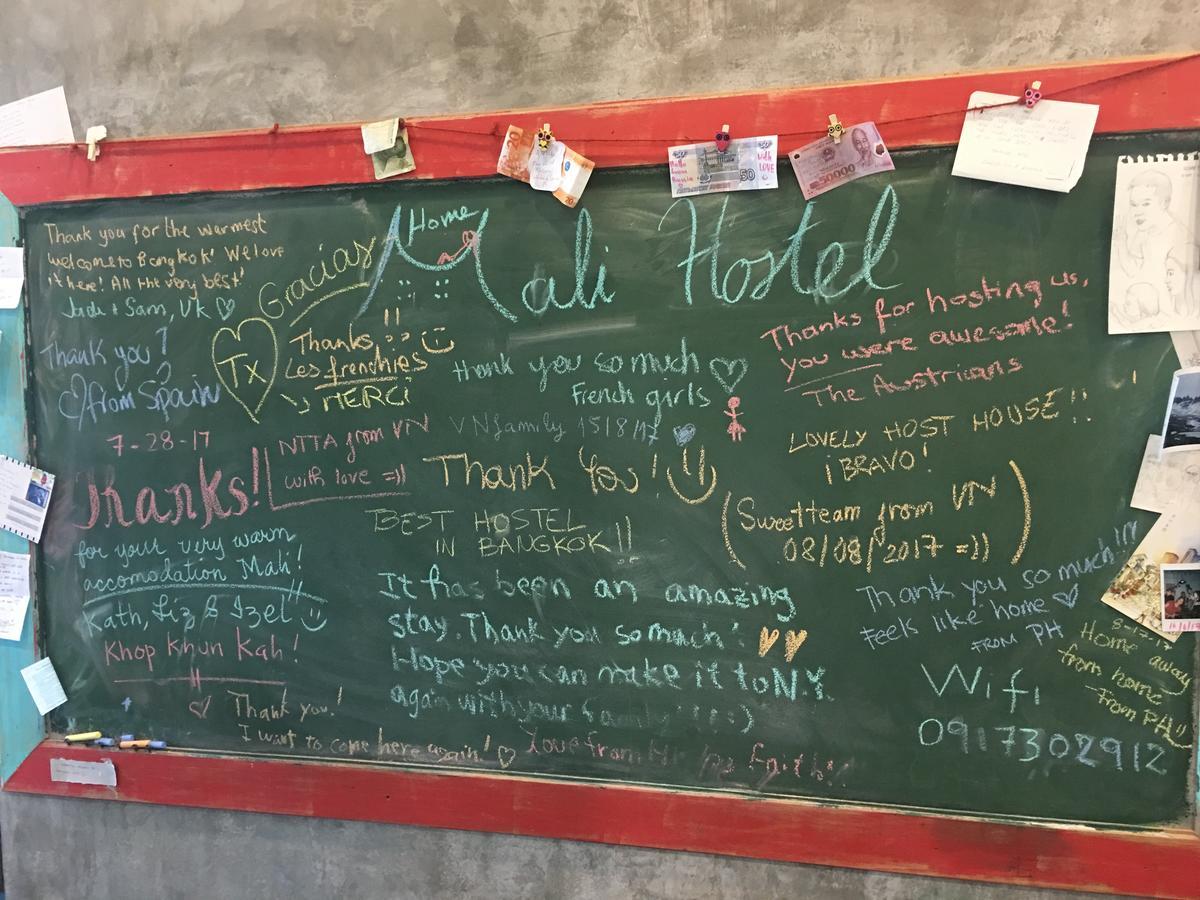 Home
Mali Hostel
Thank you for the warmest
welcome to Bangkok! We love
it here! All the very best!
Jade + Sam, UK ♡
Gracias
Tx
Thank you!
from Spain
Thanks!!
Les frenchies
MERCi
thank you so much ♡
French girls
Thanks for hosting us,
you were awesome!
The Austrians
LOVELY HOST HOUSE!!
¡BRAVO!
7-28-17
Thanks!
NTTA from VN
with love =))
VN family 15/8/17
Thank You!
BEST HOSTEL
IN BANGKOK!!
(Sweetteam from VN
08/08/2017 =)))
for your very warm
accomodation Mali!
Kath, Liz & Izel
Khop Khun Kah!
It has been an amazing
stay. Thank you so much!
Hope you can make it to N.Y.
again with your family
Thank you so much!!!
Feels like home ♡
FROM PH
Home away
from home
From PH
Wifi
0917302912
Thank you!
I want to come here again! ♡
Love from
50
with
LOVE
50000
20